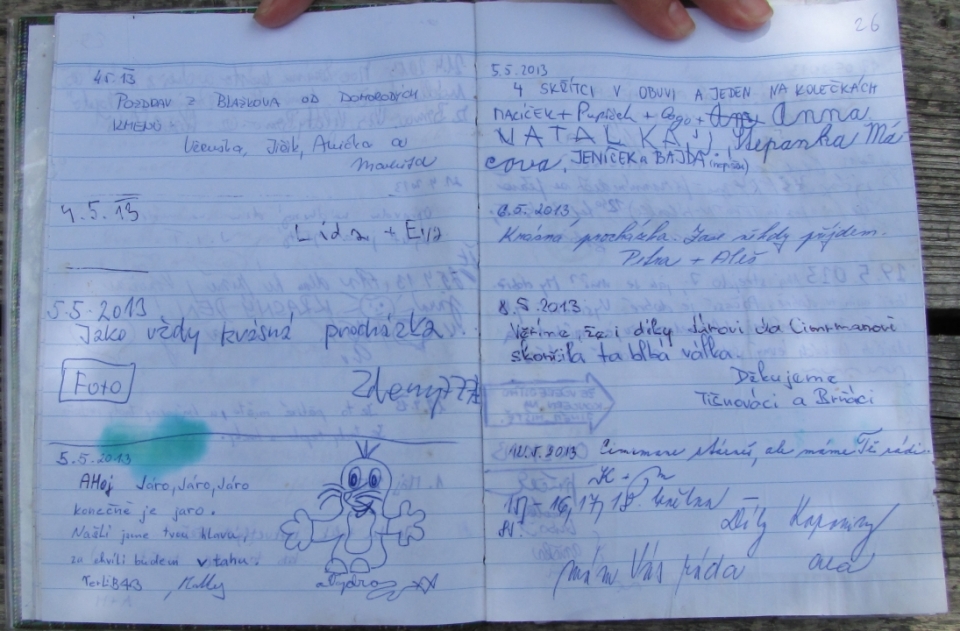 4.5.13
POZDRAV Z BLAŽKOVA OD DOMORODÝCH
KMENŮ
Jičík, Anička a
Markéta
4.5.13
Lída +
5.5.2013
Jako vždy krásná procházka!
Foto
Zdeny777
5.5.2013
AHoj Járo, Járo, Járo
konečně je jaro.
Našli jsme tvou hlavu,
za chvíli budem v tahu.
26
5.5.2013
4 SKŘÍTCI V OBUVI A JEDEN NA KOLEČKÁCH
MACÍČEK + Pupíček + Gogo + Anna
NATALKA, Štěpánka Má
cova, JENÍČEK a BAJDA
6.5.2013
Krásná procházka. Zase někdy přijdem.
Petra + Aleš
8.5.2013
Věříme, že i díky Járovi da Cimrmanovi
skončila ta blbá válka.
Děkujeme
Tišnováci a Brňáci
12.5.2013 Cimrmane stárneš, ale máme Tě rádi.
15 - 16, 17, 18. května
Díky
mám Vás ráda